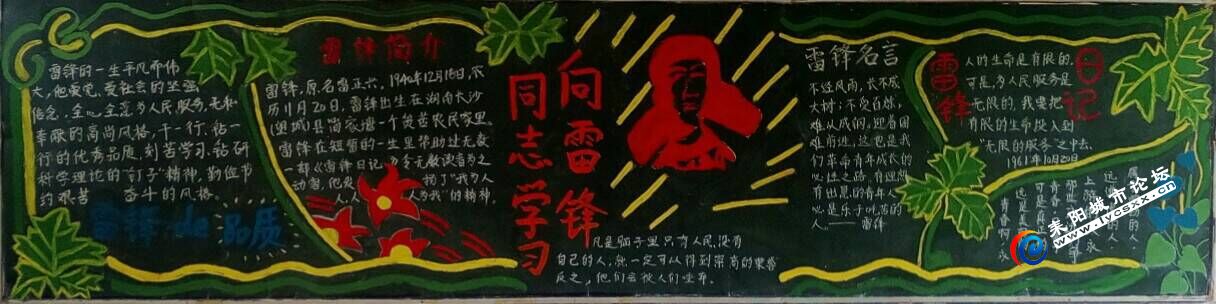 雷锋的一生平凡而伟
大,他爱党、爱社会的坚强
信念,全心全意为人民服务,无私
奉献的高尚风格,干一行、钻一
行的优秀品质,刻苦学习、钻研
科学理论的"钉子"精神,勤俭节
约艰苦 奋斗的风格。
雷锋de品质
雷锋简介
雷锋,原名雷正兴,1940年12月18日,农
历11月20日,雷锋出生在湖南长沙
县一个贫苦农民家里,
雷锋在短暂的一生里帮助过无数
一部《雷锋日记》令无数读者为之
动容,他 扬了"我为人
人,人 人为我"的精神。
向雷锋
同志学习
凡是脑子里只有人民,没有
自己的人,就一定可以得到崇高的荣誉
反之,他们会被人们唾弃。
雷锋名言
不经风雨,长不成
大树;不受百炼,
难以成钢。迎着困
难前进,这也是我
们革命青年成长的
必经之路,有理想
有出息的青年人
必是乐于吃苦的
人.——雷锋
雷锋
日记
人的生命是有限的,
可是,为人民服务是
无限的,我要把
有限的生命投入到
"无限的服务"之中去.
1961年10月20日
耒阳城市论坛
www.lycsxx.cn